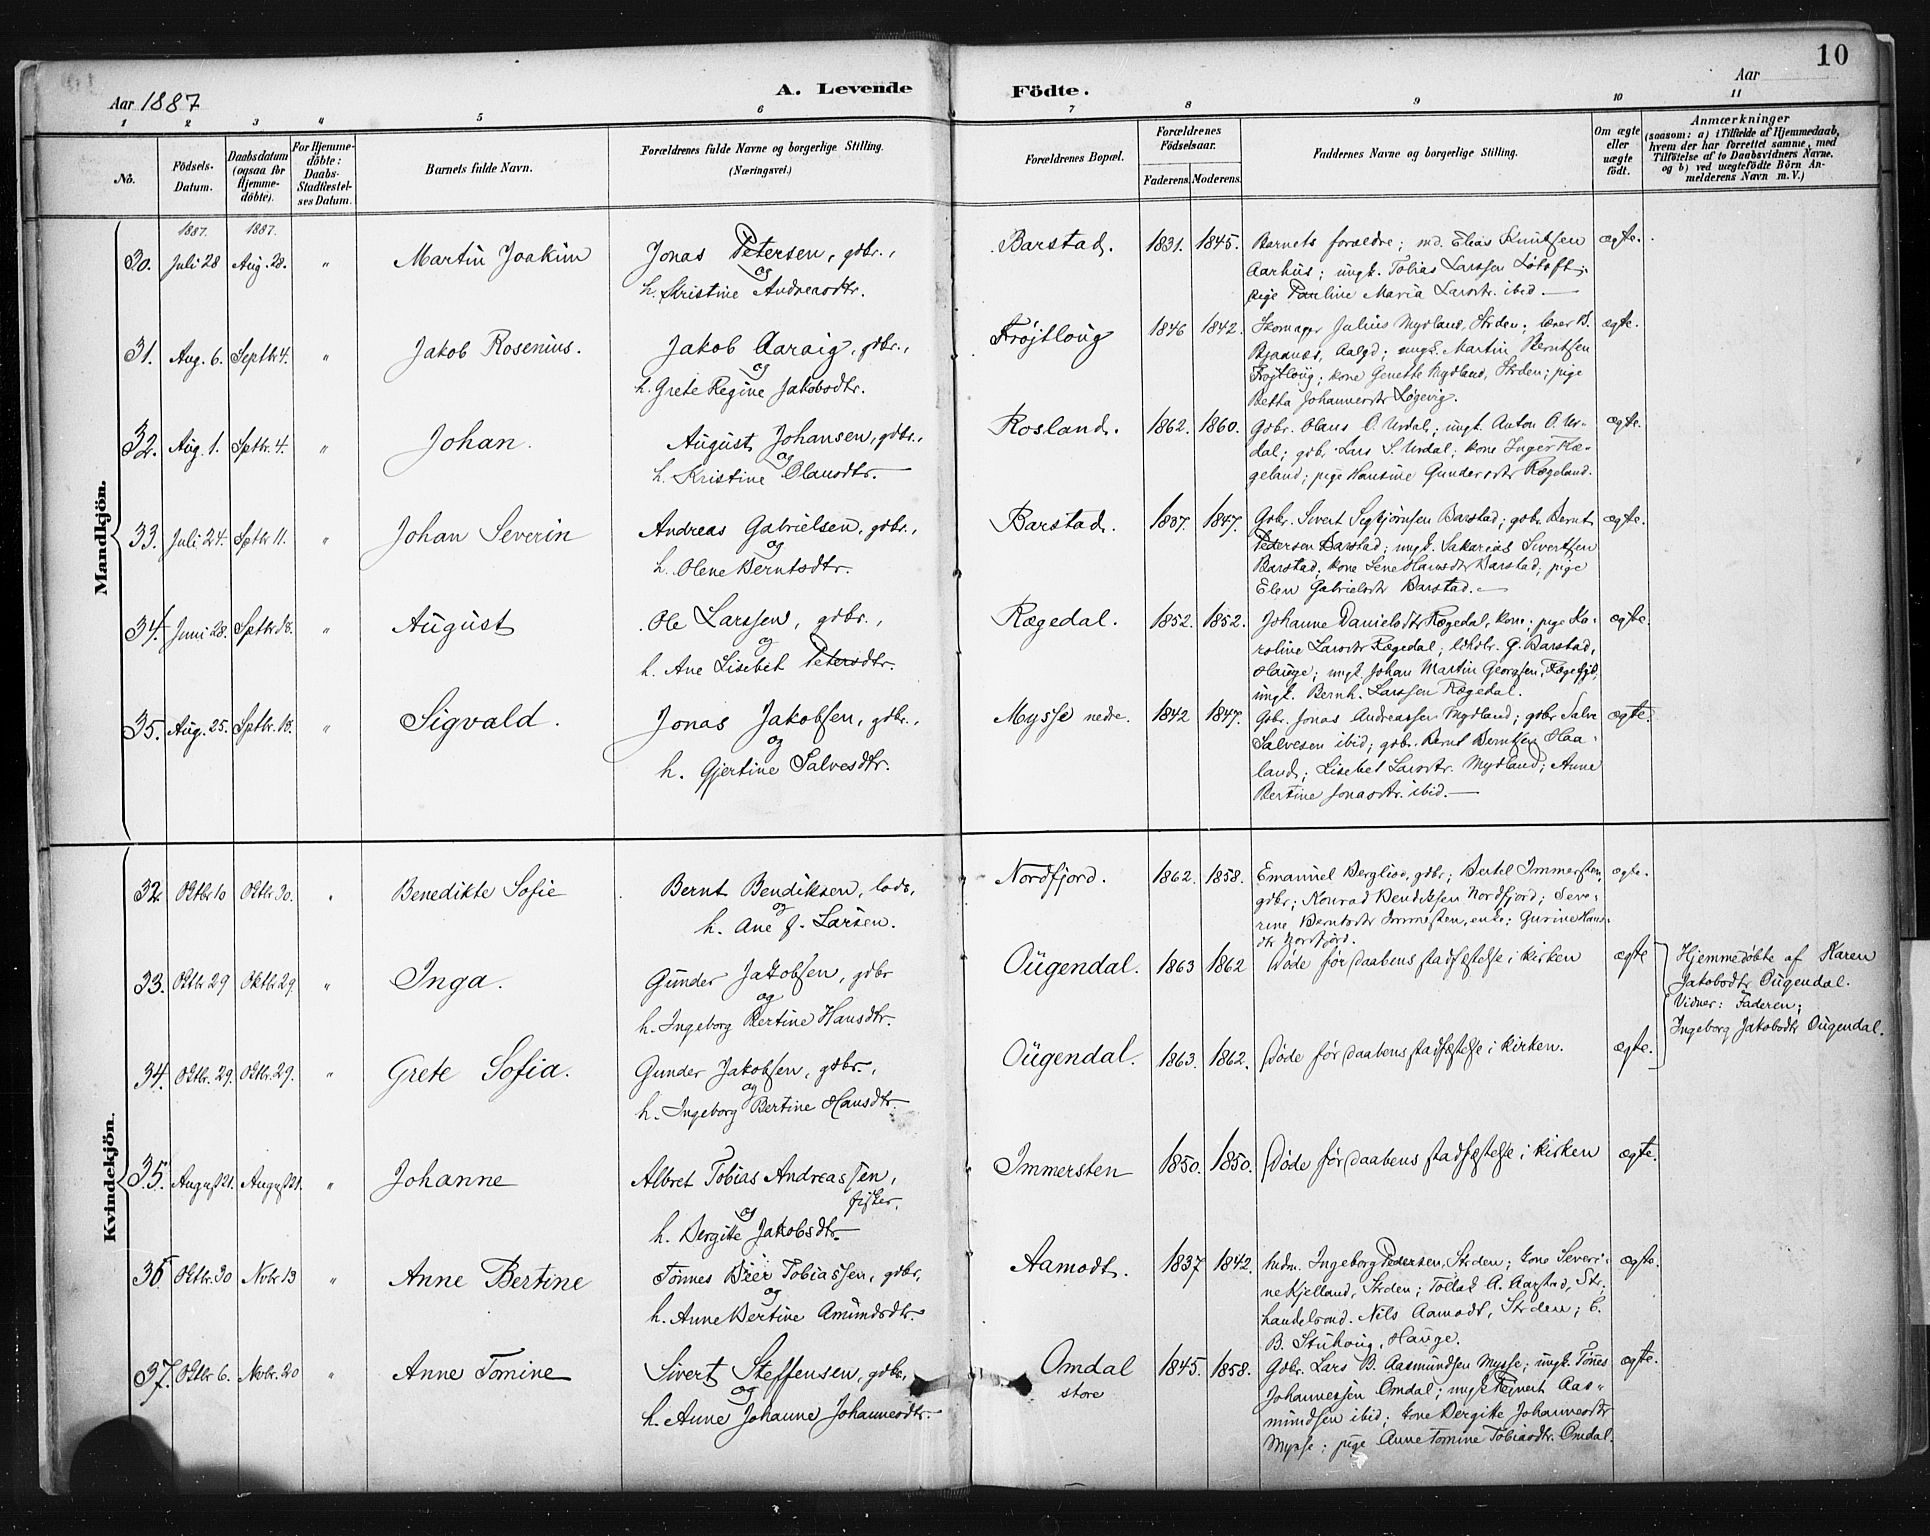 10
Aar 1887
A. Levende Födte.
Aar
1 2 3 „ 5 6 7 8 9 10 11
No.
Födsels-
Datum.
Daabsdatum
(ogsaa for
Hjemme-
döbte).
For Hjemme-
döbte:
Daabs-
Stadfæstel-
ses Datum.
Barnets fulde Navn.
Forældrenes fulde Navne og borgerlige Stilling.
(Næringsvei.)
Forældrenes Bopæl.
Forældrenes
Födselsaar.
Faderens. Moderens.
Faddernes Navne og borgerlige Stilling.
Om ægte
eller
uægte
födt.
Anmærkninger
(saasom: a) i Tilfælde af Hjemmedaab,
hvem der har forrettet samme, med
Tilföielse af to Daabsvidners Navne.
og b) ved uægtefödte Börn An-
melderens Navn m. V.)
Mandkjön.
1887. 1887.
30. Juli 28 Aug. 28. „ Martin Joakim
Jonas Petersen, gdbr.,
og
h. Kristine Andreasdtr.
Barstad. 1831. 1845.
Barnets forældre; md. Elias Knutsen
Aarhus; ungk. Tobias Larssen Løtoft;
pige Pauline Maria Larsdtr. ibid —
ægte.
31. Aug. 6. Septbr 4. „ Jakob Rosenius.
Jakob Aaraig, gdbr.,
og
h. Grete Regine Jakobsdtr.
Frøjtloug 1846 1842.
Skomager Julius Mydland, Strden; lærer B.
Bjaanes, Aalgd; ungk. Martin Berntsen
Frøjtloug; kone Genette Mydland, Strden; pige
Betha Johannesdtr Løgevig.
ægte.
32. Aug. 1. Sptbr. 4. „ Johan.
August Johansen, gdbr.,
og
h. Kristine Olausdtr.
Rosland. 1862. 1860.
Gdbr. Olaus O. Urdal; ungk. Anton O. Ur-
dal; gdbr. Lars S. Urdal; kone Inger Ræ-
geland; pige Hansine Gundersdtr Rægeland.
ægte.
33. Juli 24. Sptbr 11. „ Johan Severin
Andreas Gabrielsen, gdbr.,
og
h. Olene Berntsdtr.
Barstad. 1837. 1847.
Gdbr. Sivert Sigbjørnsen Barstad; gdbr. Bernt
Pedersen Barstad; ungk. Sakarias Sivertsen
Barstad; kone Lene Hansdtr Barstad; pige
Elen Gabrielsdtr Barstad. —
ægte.
34. Juni 28. Sptbr. 18. „ August
Ole Larssen, gdbr.,
og
h. Ane Lisebet Petersdtr.
Rægedal. 1852. 1852.
Johanne Danielsdtr Rægedal, kone; pige Ka-
roline Larsdtr Rægedal; G. Barstad,
Hauge; ungk. Johan Martin Georgsen,
ungk. Bernh. Larssen Rægedal.
ægte.
35. Aug. 25. Sptbr. 18. „ Sigvald.
Jonas Jakobsen, gdbr.,
og
h. Gjertine Salvesdtr.
Mysse nedre. 1842 1847.
Gdbr. Jonas Andreassen Mydland; gdbr Salve
Salvesen ibid; gdbr. Bernt Berntsen Haa-
land; Lisebet Larsdtr. Mydland; Anne
Bertine Jonasdtr. ibid. —
ægte.
Kvindekjön.
32 Oktbr 10 Oktbr. 30. „ Benedikte Sofie
Bernt Bendiksen, lods,
og
h. Ane f. Larsen.
Nordfjord. 1862. 1858.
Emanuel Berglioo, gdbr; Bertel Immersten,
gdbr; Konrad Bendiksen Nordfjord; Seve-
rine Berntsdtr Immersten, enke; Gurine Hans-
dtr Nordfjord.
ægte.
33. Oktbr 29 Oktbr 29. „ Inga.
Gunder Jakobsen, gdbr
og
h. Ingeborg Bertine Hansdtr.
Ougendal. 1863 1862
Døde før daabens stadfæstelse i kirken ægte
Hjemmedøbte af Karen
Jakobsdtr Ougendal.
Vidner: Faderen;
Ingeborg Jakobsdtr Ougendal.
34. Oktbr. 29. Oktbr. 29. „ Grete Sofia.
Gunder Jakobsen, gdbr.,
og
h. Ingeborg Bertine Hansdtr.
Ougendal. 1863. 1862.
Døde før daabens stadfæstelse i kirken. ægte.
35. August 21. August 21. „ Johanne
Albret Tobias Andreassen,
fisker.
og
h. Bergitte Jakobsdtr.
Immersten 1850. 1850.
Døde før daabens stadfæstelse i kirken ægte.
36 Oktbr. 30 Novbr 13 „ Anne Bertine
Tønnes Beer Tobiassen, gdbr.
og
h. Anne Bertine Amundsdtr.
Aamodt. 1837 1842.
Ingeborg Pedersen, Strden; kone Severi-
ne Kjelland, Strden; Tollak A. Aarstad, Str.;
handelsmd. Nils Aamodt, Strden; C.
B. Stuhoug, Hauge.
ægte.
37. Oktbr 6. Novbr. 20 „ Anne Tomine
Sivert Steffensen, gdbr.,
og
h. Anne Johanne Johannesdtr.
Omdal
store
1845. 1858.
Gdbr. Lars B. Aasmundsen Mysse; ungk. Tønnes
Johannessen Omdal; ungk Reinert Aas-
mundsen ibid; kone Bergitte Johannesdtr
Mysse; pige Anne Tomine Tobiasdtr. Omdal.
ægte.